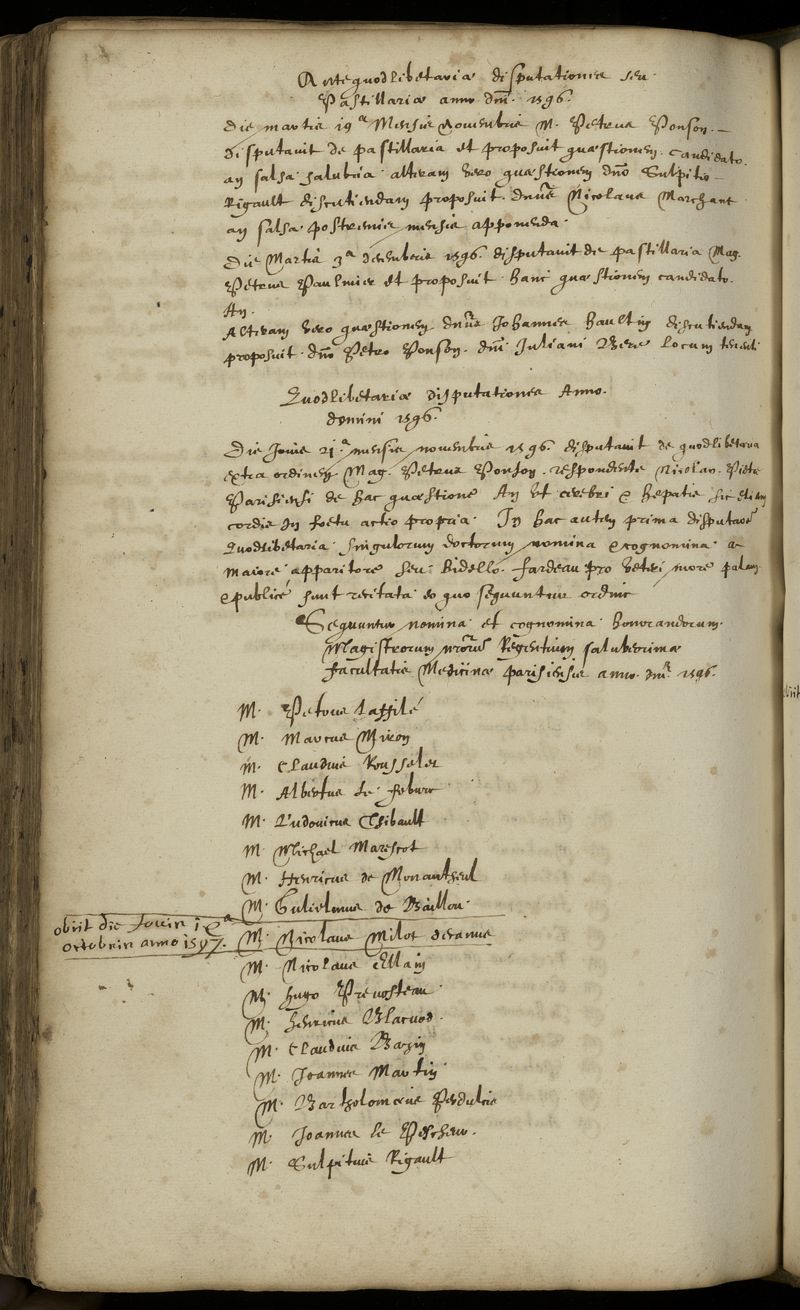 Antequodlibetariæ disputationes seu
Pastillariæ anno dni. 1596.
Die martis 19ª Mensis Novembris M. Petrus Ponson.
disputavit de pastillaria et proposuit quæstionem candidato.
an salsa salubria. alteram vero quæstionem dno Sulpitio
Rigault discutiendam proposuit dnus Nicolaus Marchant
an salsa postremis mensis apponenda.
Die Martis 3ª decembris 1596. disputavit de pastillaria Mag.
Petrus Paulmier et proposuit hanc quæstionem candidato.
An.
Alteram vero quæstionem dnus Johannes Haultin discutiendam
proposuit dno Petro Ponson. dni Juliani locum tenenti
Quodlibetariæ disputationes Anno.
domini 1596.
Die Jovis 21.ª mensis novembris 1596. disputavit de quodlibetaria
extra ordinem Mag. Petrus Ponson. respondente Nicolao Pietre
Parisiensi de hac quæstione An ut cerebri & hepatis sic etiam
cordis in foetu actio propria. In hac autem prima disputaoe
Quodlibetaria singulorum doctorum nomina & cognomina a
maiore apparitore seu Bidello fardeau pro veteri more palam
& publicè sunt recitata eo quo sequuntur ordine
Sequuntur nomina et cognomina honorandorum
Magistrorum nrorum Regentium saluberrimæ
facultatis Medicinæ parisiensis anno dni 1596.
M. Petrus Laffilé
M. Marcus Miron
M. Claudius Rousselet
M. Albertus le febure
M. Ludovicus Thibault
M. Michael Marescot
M. Henricus de Monantheuil
M. Gulielmus de Baillou
obiit die Jovis
octobris anno 1597.
M. Nicolaus Milot decanus
M. Nicolaus Ellain
M. Hugo Prevosteau
M. Henricus Blacvod
M. Claudius Bazin
M. Joannes Martin
M. Bartholomæus Perdulcis
M. Joannes le Pescheur
M. Sulpitius Rigault